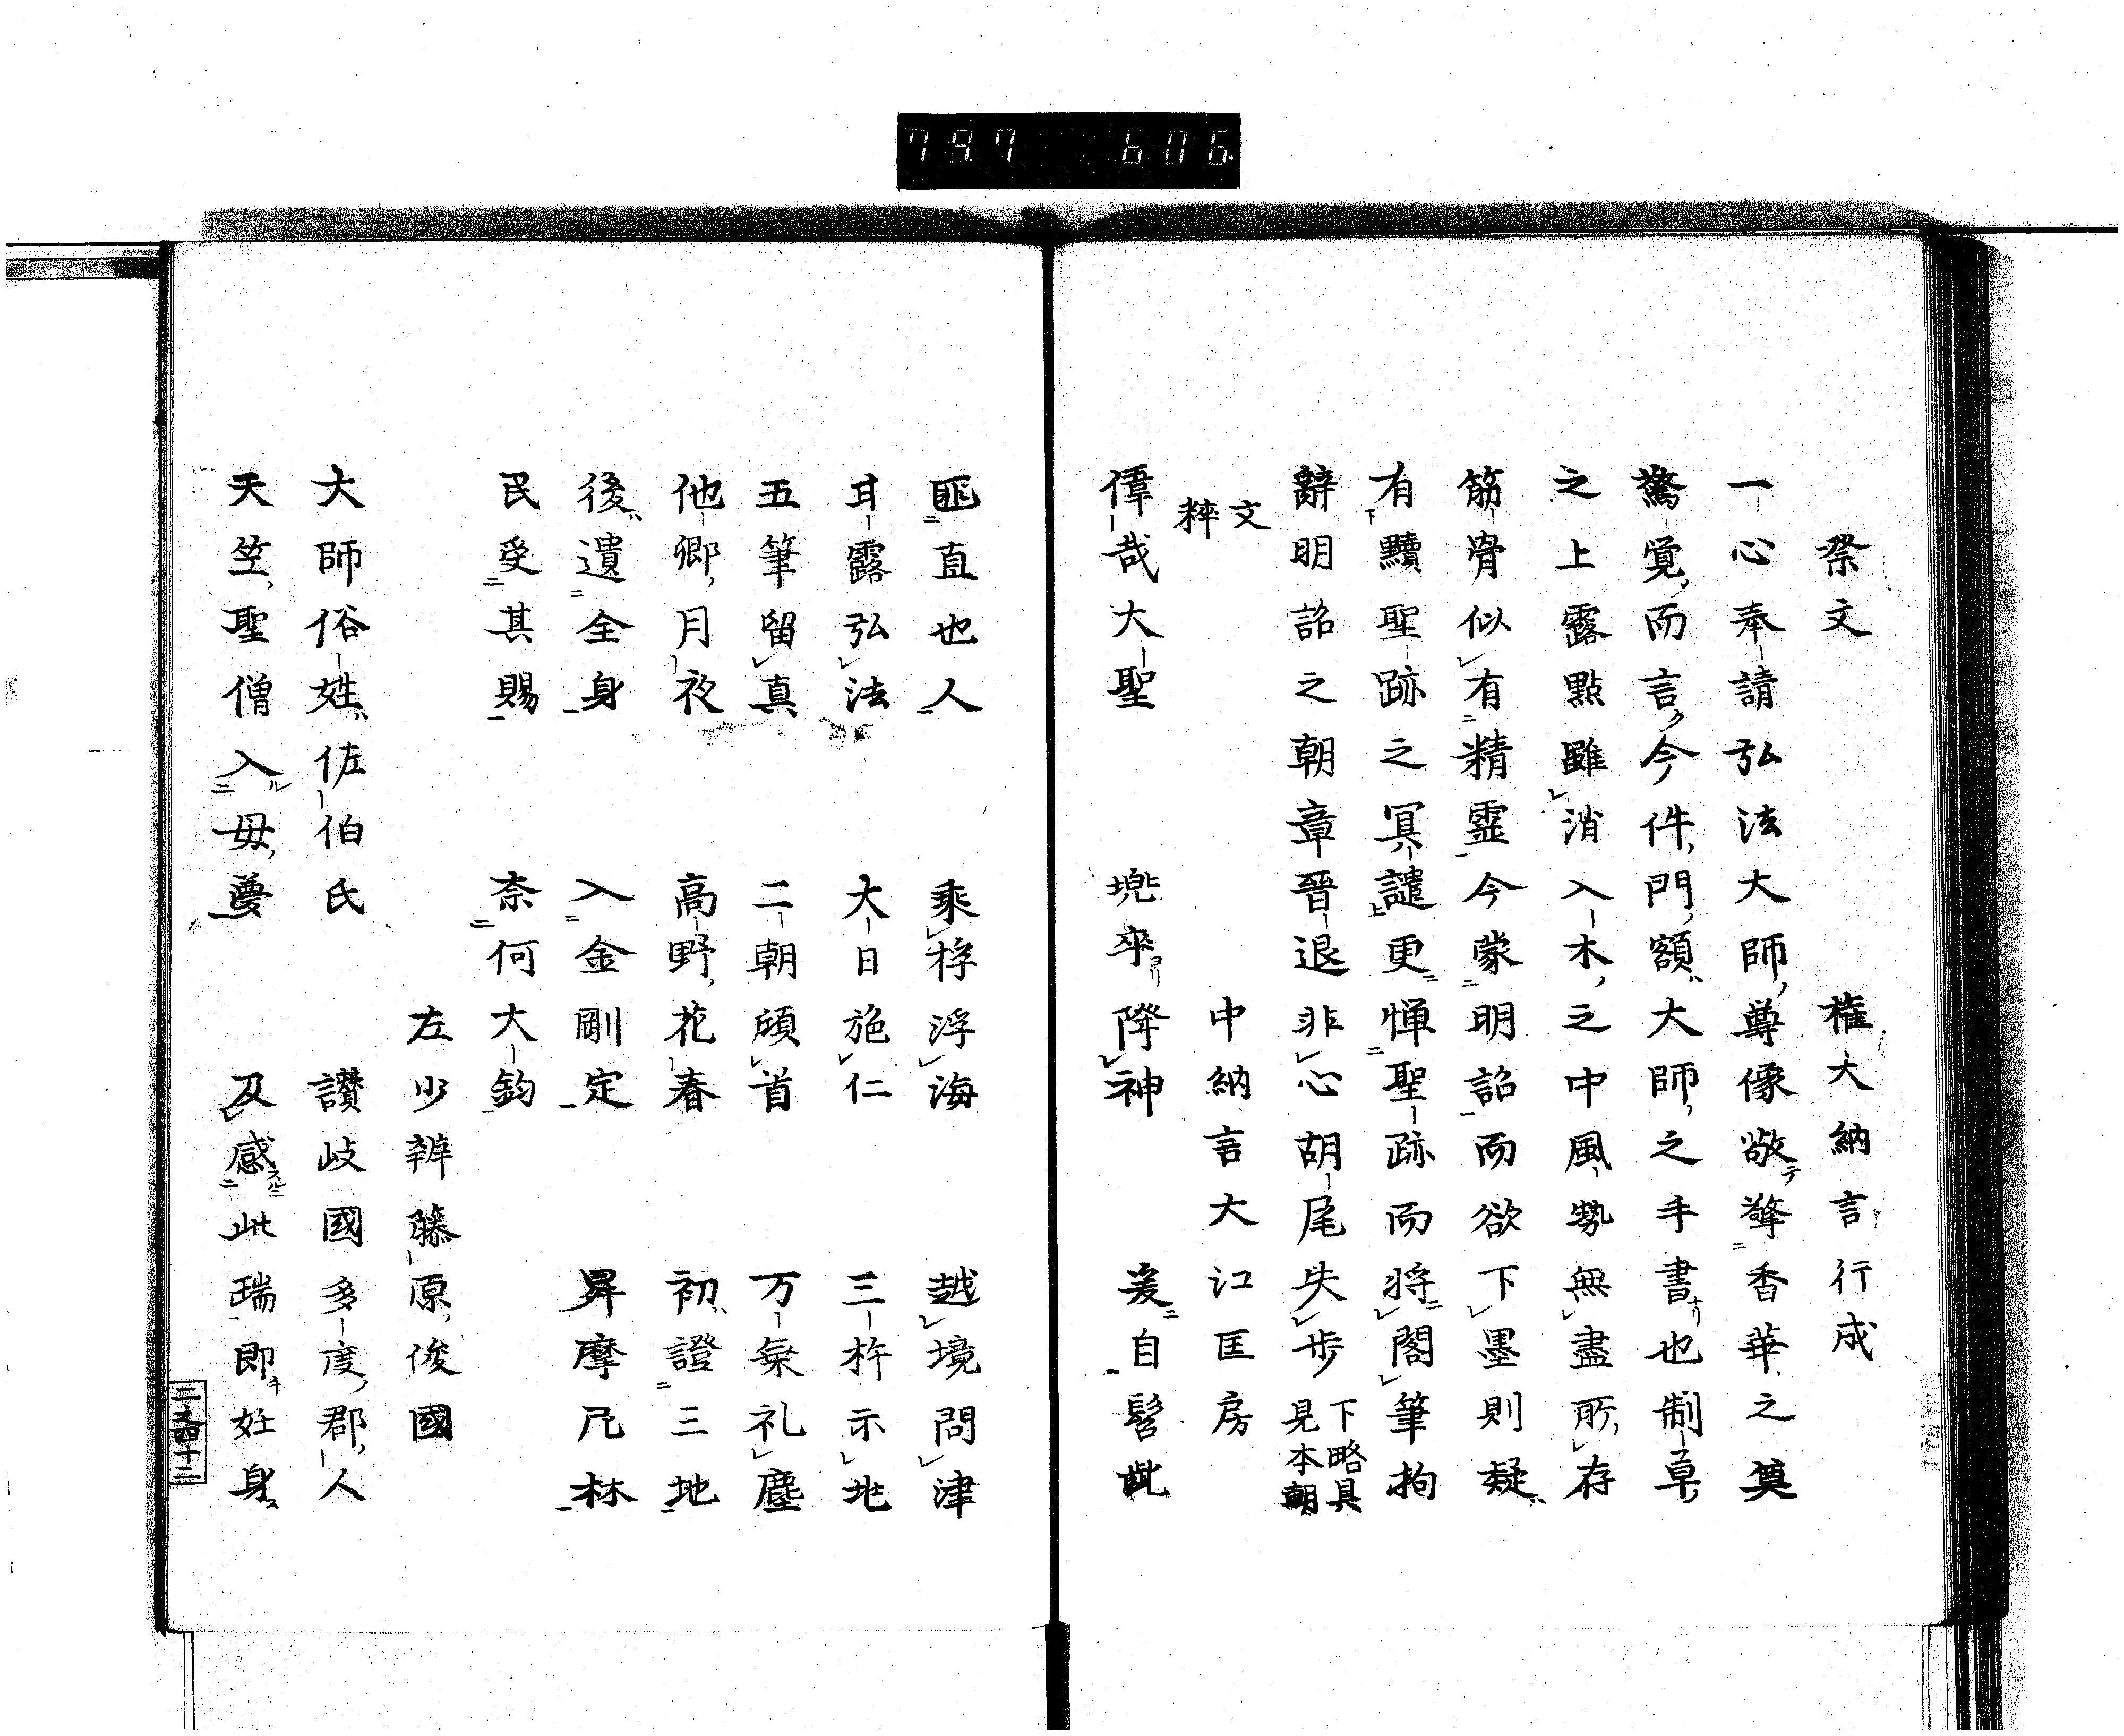 797 606.
祭文 権大納言行成
一心奉請弘法大師尊像敬擎香華之奠
驚覚而言今件門額大師之手書也制草
之上露點雖消入木之中風勢無盡所存
筋骨似有精霊今蒙明詔而欲下墨則疑
有黷聖跡之冥譴更憚聖跡而将閣筆拘
辭明詔之朝章晉退非心胡尾失步 下略具見本朝
文粹
中納言大江匡房
偉哉大聖 兜率降神 爰自髫齔
匪直也人 乘桴浮海 越境問津
甘露弘法 大日施仁 三杵示北
五筆留真 二朝頎首 万乗礼塵
他郷月夜 高野花春 初證三地
後遺全身 入金剛定 昇摩尼林
民受其賜 奈何大鈞
左少辨藤原俊國
大師俗姓佐伯氏 讃岐國多度郡人
天竺聖僧入母夢 及感此瑞即妊身
二之四十二